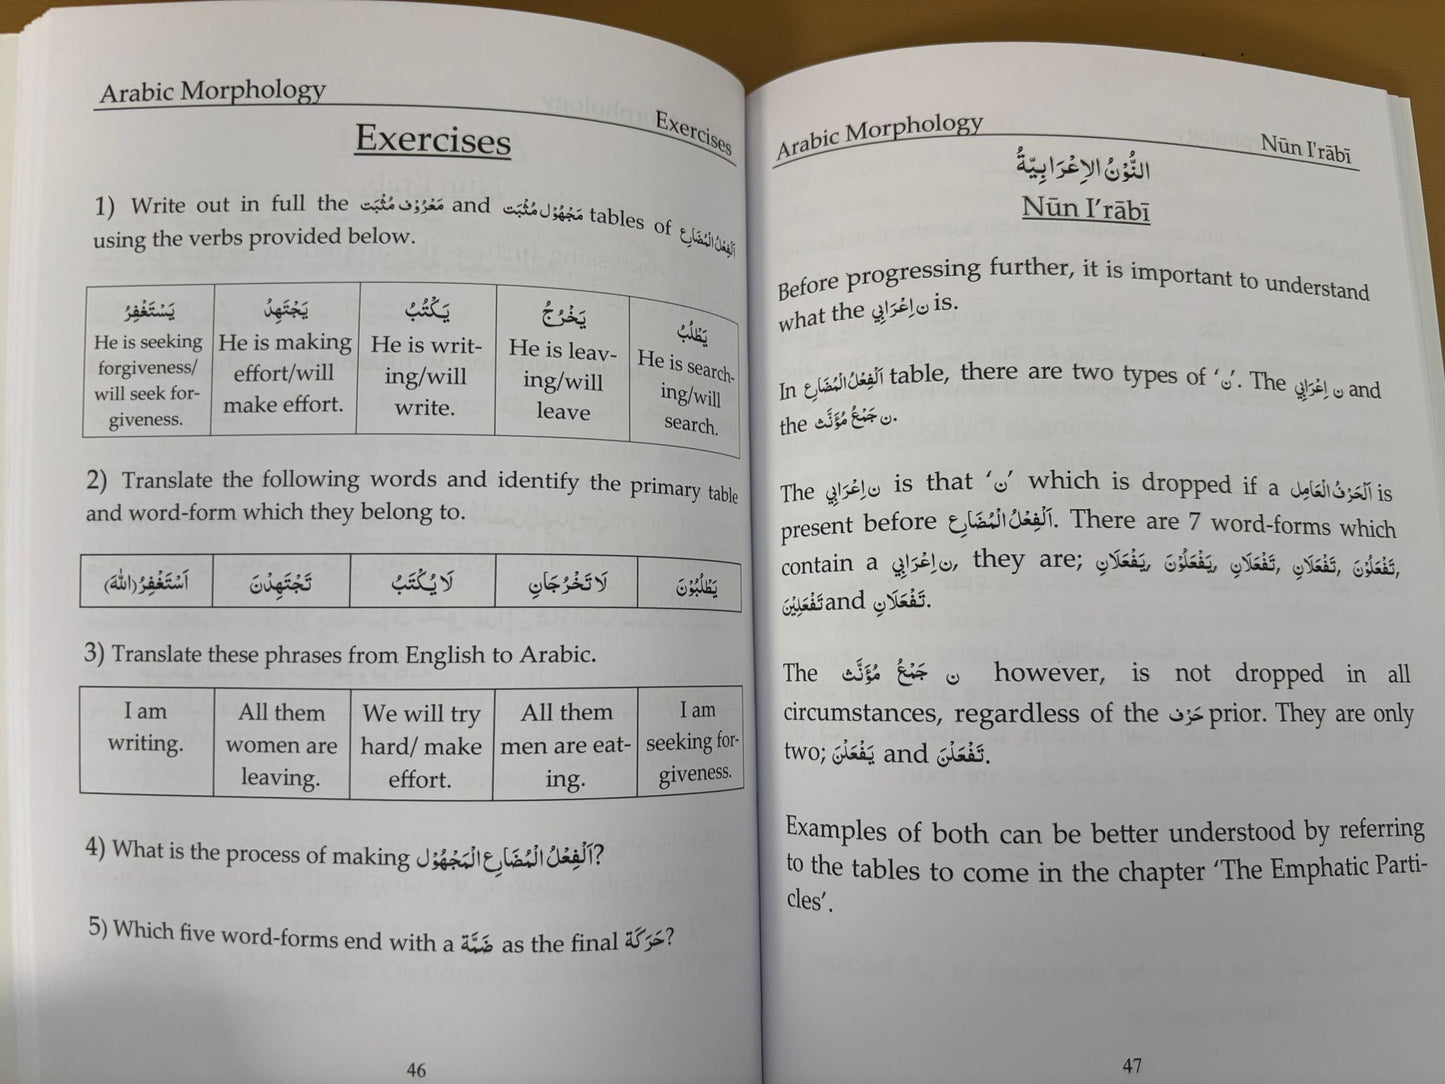 Arabic Morphology
Exercises
Exercises
1) Write out in full the مَعْرُوْف مُثْبَت and مَجْهُوْل مُثْبَت tables of اَلْفِعْلُ الْمُضَارِع
using the verbs provided below.
يَسْتَغْفِرُ
He is seeking
forgiveness/
will seek for-
giveness.
يَجْتَهِدُ
He is making
effort/will
make effort.
يَكْتُبُ
He is writ-
ing/will
write.
يَخْرُجُ
He is leav-
ing/will
leave
يَطْلُبُ
He is search-
ing/will
search.
2) Translate the following words and identify the primary table
and word-form which they belong to.
أَسْتَغْفِرُ(اللّٰهَ)
تَجْتَهِدْنَ
لَا يُكْتَبُ
لَا تَخْرُجَانِ
يَطْلُبُوْنَ
3) Translate these phrases from English to Arabic.
I am
writing.
All them
women are
leaving.
We will try
hard/ make
effort.
All them
men are eat-
ing.
I am
seeking for-
giveness.
4) What is the process of making اَلْفِعْلُ الْمُضَارِع الْمَجْهُوْل?
5) Which five word-forms end with a ضَمَّة as the final حَرَكَة?
46
Arabic Morphology
Nūn I'rābī
النُّوْنُ الاِعْرَابِيَّةُ
Nūn I'rābī
Before progressing further, it is important to understand
what the ن اِعْرَابِي is.
In اَلْفِعْلُ الْمُضَارِع table, there are two types of ‘ن’. The ن اِعْرَابِي and
the ن جَمْعُ مُؤَنَّث.
The ن اِعْرَابِي is that ‘ن’ which is dropped if a اَلْحَرْفُ الْعَامِل is
present before اَلْفِعْلُ الْمُضَارِع. There are 7 word-forms which
contain a ن اِعْرَابِي, they are; يَفْعَلَانِ, يَفْعَلُوْنَ, تَفْعَلَانِ, تَفْعَلَانِ, تَفْعَلُوْنَ,
تَفْعَلِيْنَ and تَفْعَلَانِ.
The ن جَمْعُ مُؤَنَّث however, is not dropped in all
circumstances, regardless of the حَرْف prior. They are only
two; يَفْعَلْنَ and تَفْعَلْنَ.
Examples of both can be better understood by referring
to the tables to come in the chapter ‘The Emphatic Parti-
cles’.
47